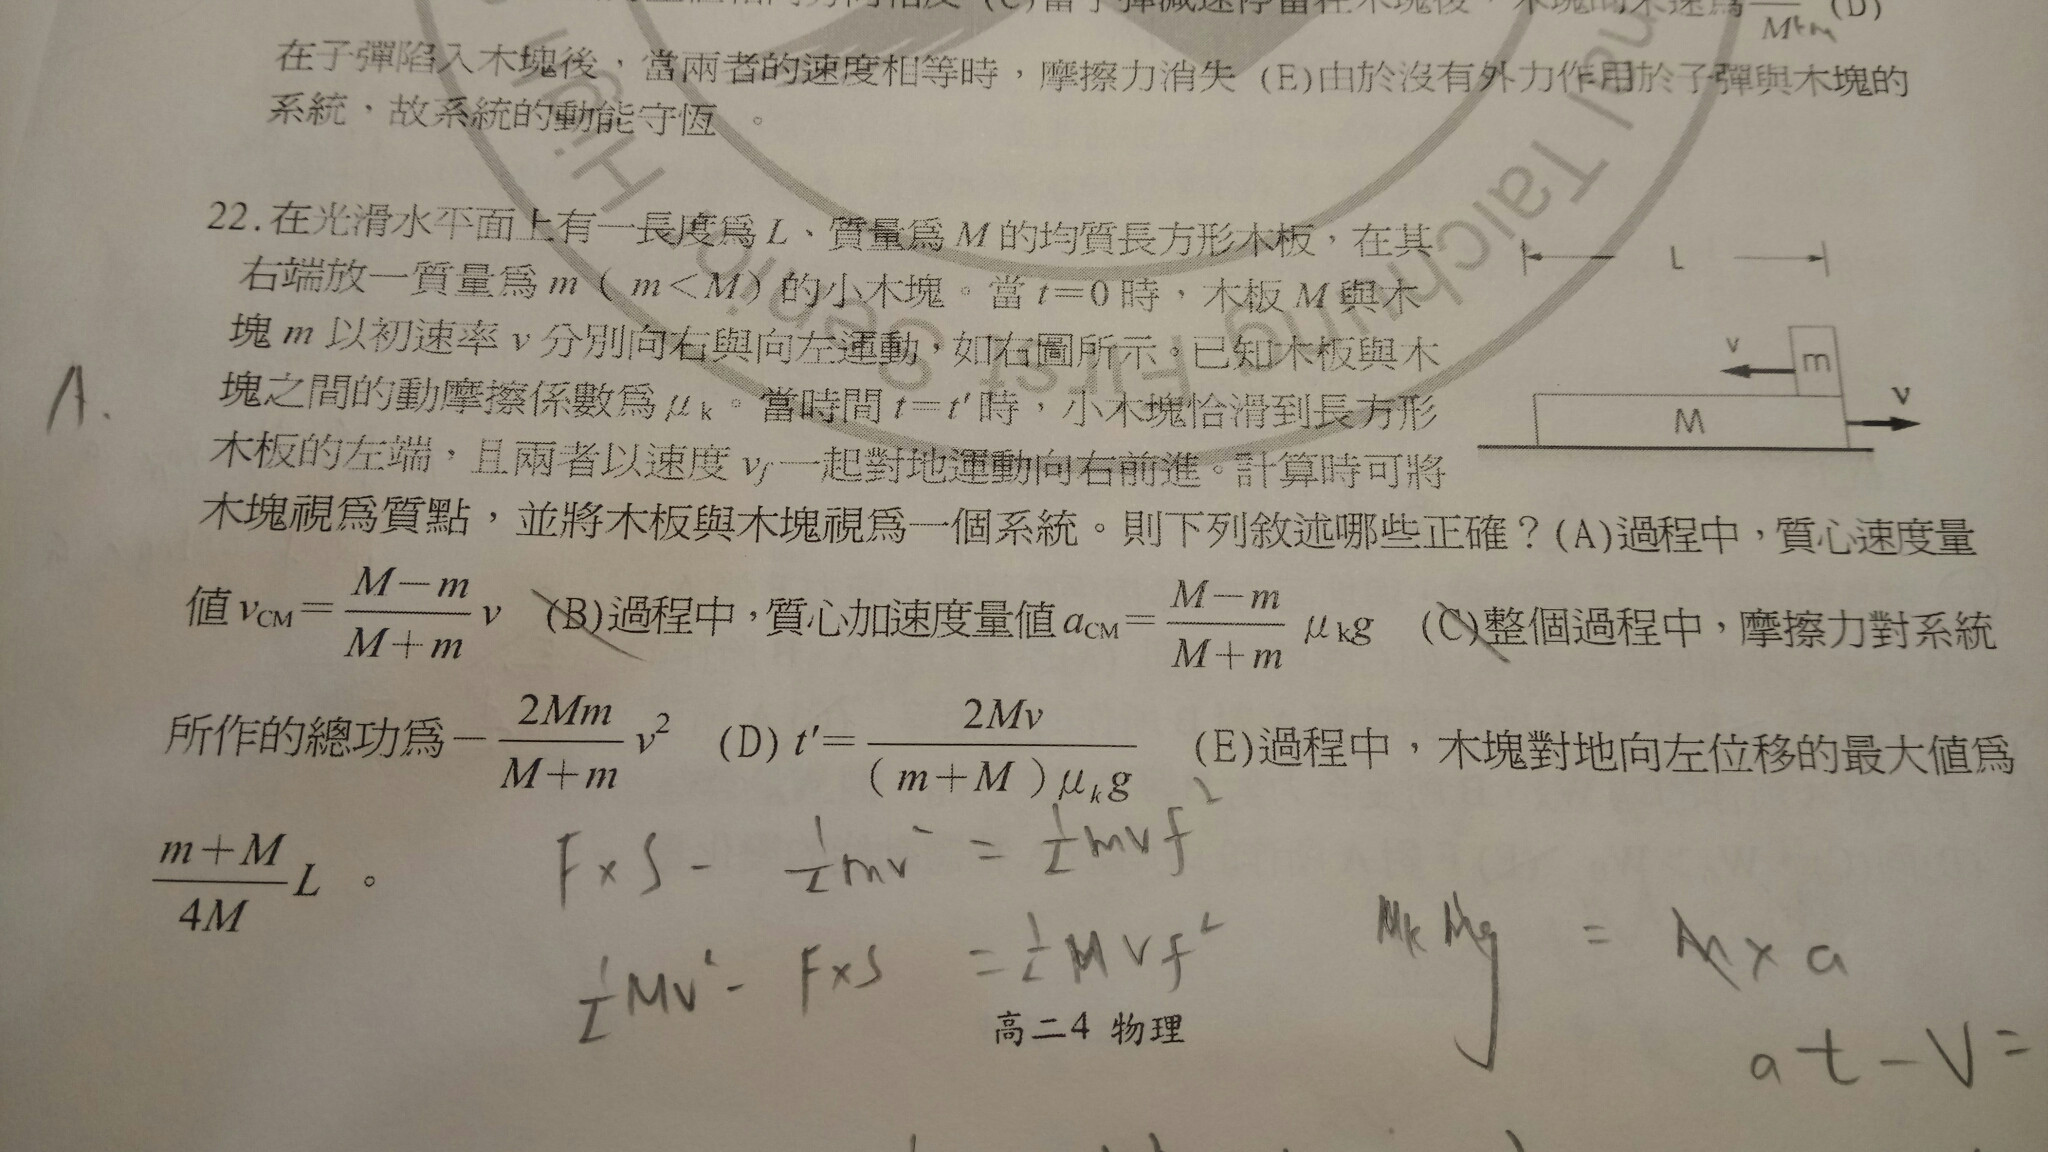 在子彈陷入木塊後，當兩者的速度相等時，摩擦力消失 (E)由於沒有外力作用於子彈與木塊的
系統，故系統的動能守恆 。
22.在光滑水平面上有一長度爲 L、質量爲 M 的均質長方形木板，在其
右端放一質量爲 m ( m<M) 的小木塊。當 t=0 時，木板 M 與木
塊 m 以初速率 v 分別向右與向左運動，如右圖所示。已知木板與木
塊之間的動摩擦係數爲 μk。當時間 t=t′時，小木塊恰滑到長方形
木板的左端，且兩者以速度 vf 一起對地運動向右前進。計算時可將
木塊視爲質點，並將木板與木塊視爲一個系統。則下列敘述哪些正確？(A)過程中，質心速度量
值 vCM=(M-m)/(M+m) v (B)過程中，質心加速度量值 aCM=(M-m)/(M+m) μkg (C)整個過程中，摩擦力對系統
所作的總功爲-2Mm/(M+m) v² (D) t′=2Mv/((m+M)μkg) (E)過程中，木塊對地向左位移的最大值爲
(m+M)/4M L 。
L
v
m
v
M
A.
F×S - ½mv² = ½mvf²
½Mv² - F×S = ½MVf²
高二4 物理
at-V=
National Taichung First Senior High